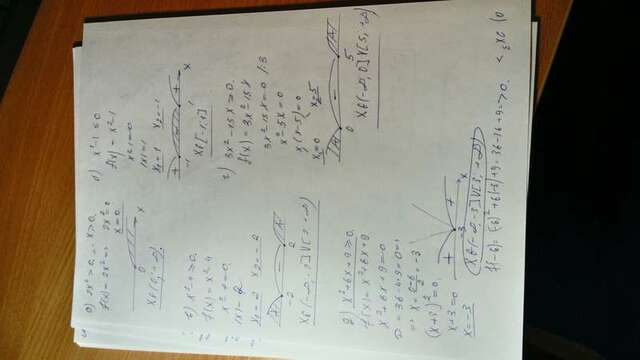 a) 2x² > 0, x > 0.
f(x) = 2x² ⇒ 2x² = 0
x = 0
0 x
б) x² - 1 ≤ 0
f(x) = x² - 1
x² - 1 = 0
|x| = 1
x₁ = 1 x₂ = -1
+ - +
-1 1 x
x ∈ [-1; 1]
в) x² - 4 ≥ 0.
f(x) = x² - 4
x² - 4 = 0.
|x| = 2
x₁ = 2 x₂ = -2
-
-2 2
x ∈ (-∞, -2] V [2, +∞)
г) 3x² - 15x ≥ 0.
f(x) = 3x² - 15x
3x² - 15x = 0 / :3
x² - 5x = 0
x(x-5) = 0
x₁ = 0 x₂ = 5
-
0 5
x ∈ (-∞, 0] V [5, +∞)
д) x² + 6x + 9 ≥ 0.
f(x) = x² + 6x + 9
x² + 6x + 9 = 0
D = 36 - 4·9 = 0 ⇒
⇒ x = 0-6/2 = -3
(x+3)² = 0
x + 3 = 0
x = -3
+ +
-3 x
x ∈ (-∞, -3] V [3, +∞)
f(-6) = (-6)² + 6(-6) + 9 = 36 - 36 + 9 => 0.